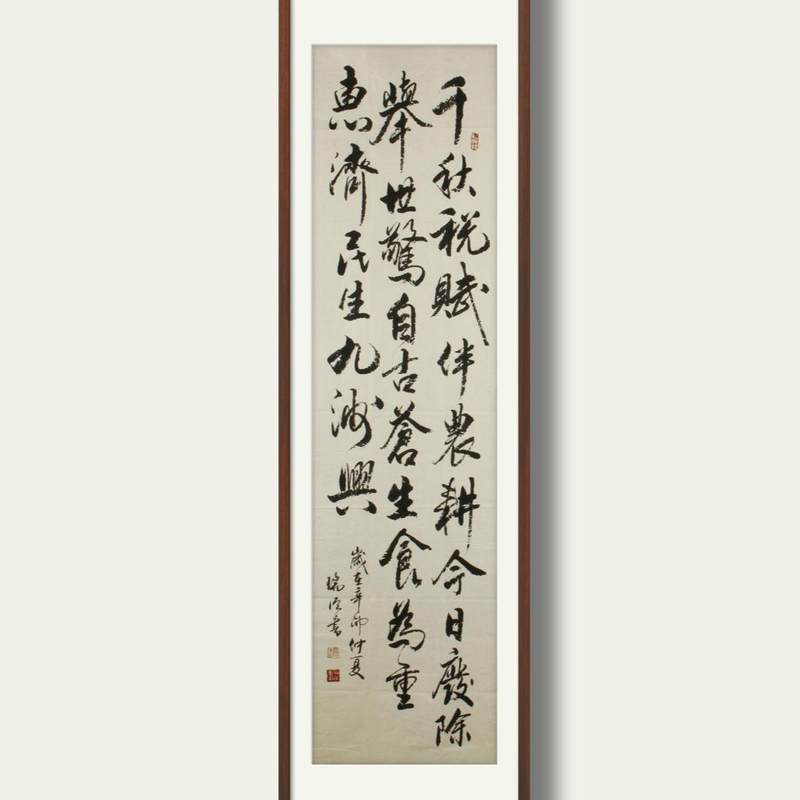 千秋税賦伴農耕今日廢除
舉世驚自古蒼生食為重
惠濟民生九洲興
歲在辛卯仲夏
書